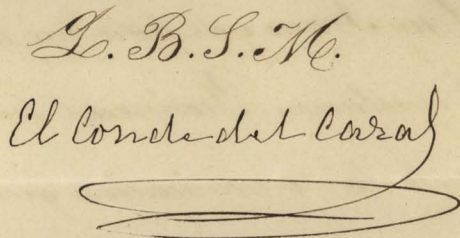 L. B. S. M.
El Conde del Casal